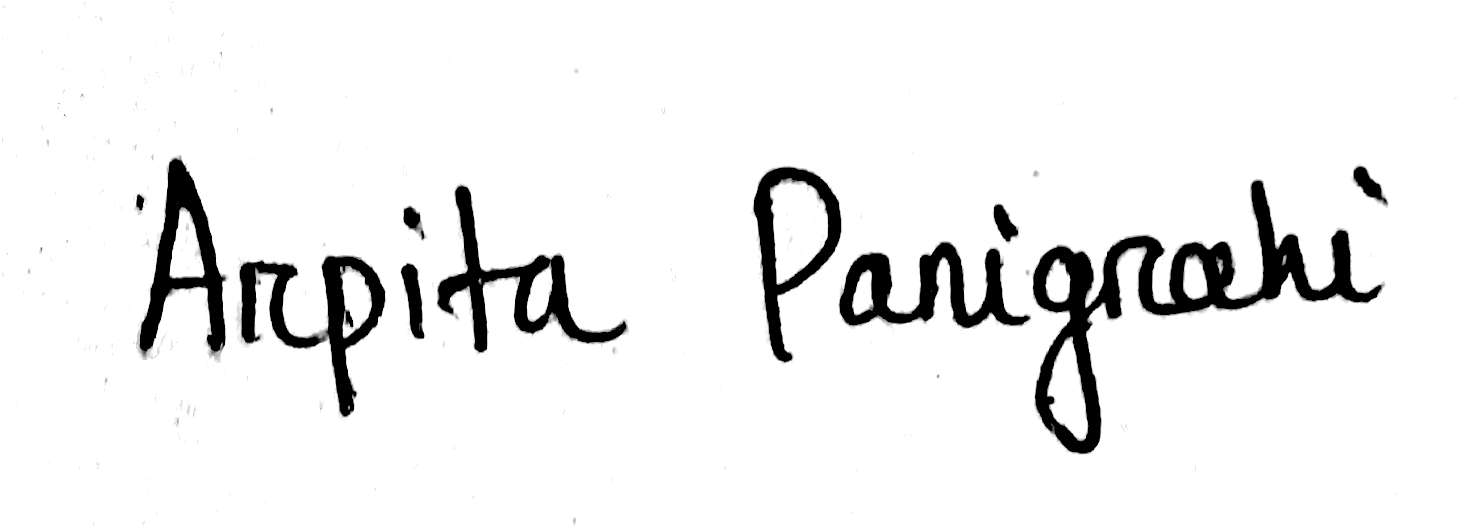 Arpita Panigrahi